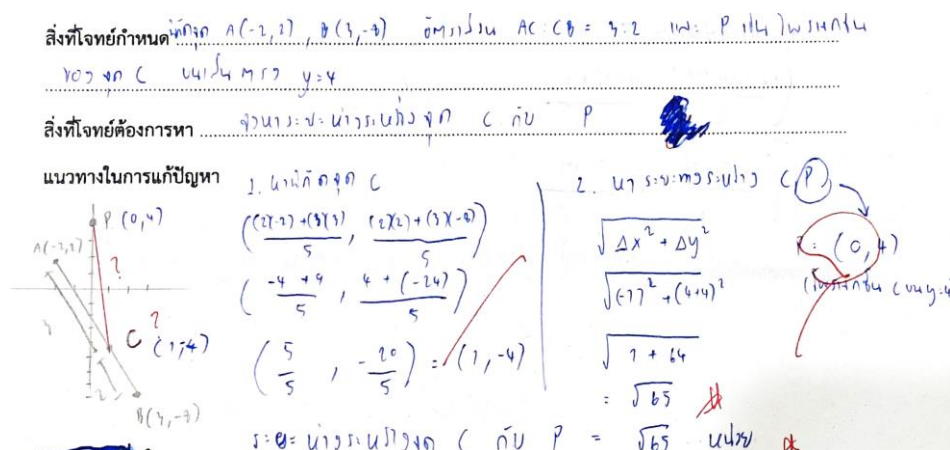 สิ่งที่โจทย์กำหนด พิกัดจุด A(-2,2) , B(3,-8) อัตราส่วน AC:CB = 3:2 และ P เป็นโพรเจกชัน
ของจุด C บนเส้นตรง y=4
สิ่งที่โจทย์ต้องการหา จงหาระยะห่างระหว่างจุด C กับ P
แนวทางในการแก้ปัญหา
1. หาพิกัดจุด C
((2)(-2)+(3)(3) / 5 , (2)(2)+(3)(-8) / 5)
(-4+9 / 5 , 4+(-24) / 5)
(5/5 , -20/5) = (1,-4)
2. หาระยะทางระหว่าง C P
√Δx²+Δy²
√(-1)²+(4+4)²
√1+64
= √65
P = (0,4)
(โพรเจกชัน C บน y=4
P(0,4)
A(-2,2)
?
?
3
C (1,-4)
2
B(3,-8)
ระยะห่างระหว่างจุด C กับ P = √65 หน่วย